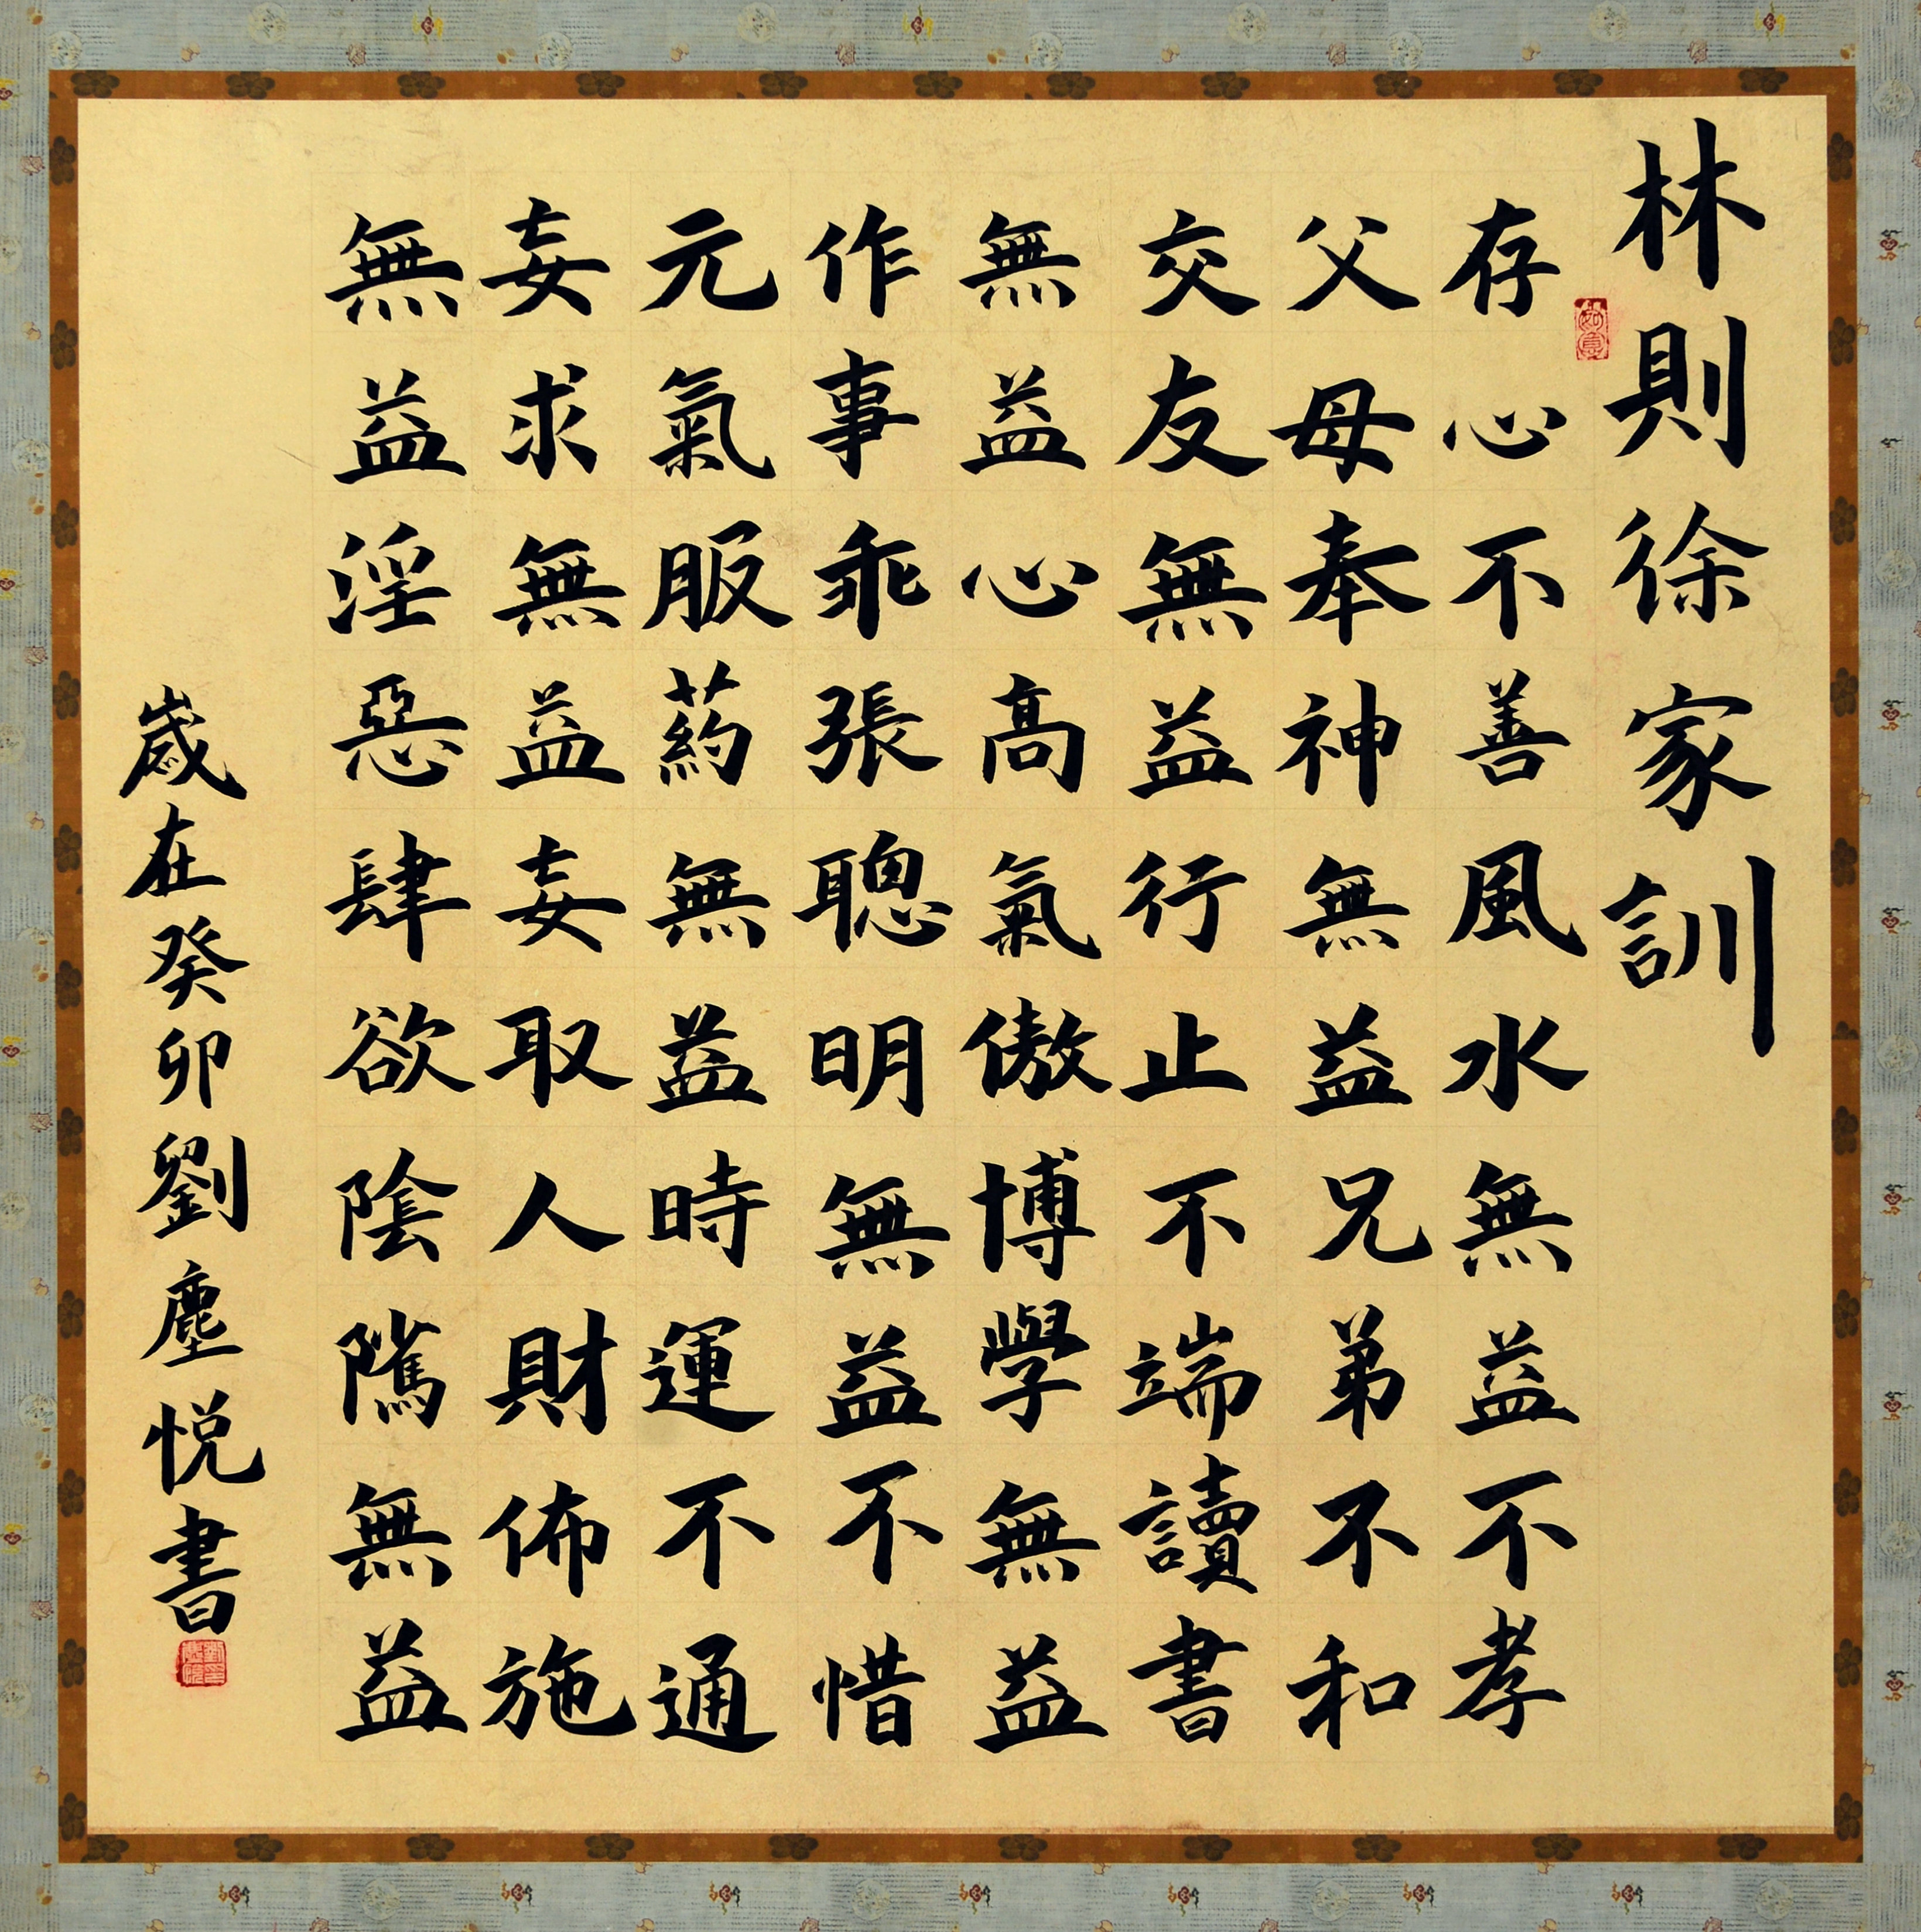 林則徐家訓
存心不善風水無益不孝
父母奉神無益兄弟不和
交友無益行止不端讀書
無益心高氣傲博學無益
作事乖張聰明無益不惜
元氣服葯無益時運不通
妄求無益妄取人財佈施
無益淫惡肆欲陰騭無益
歲在癸卯劉塵悦書
如意